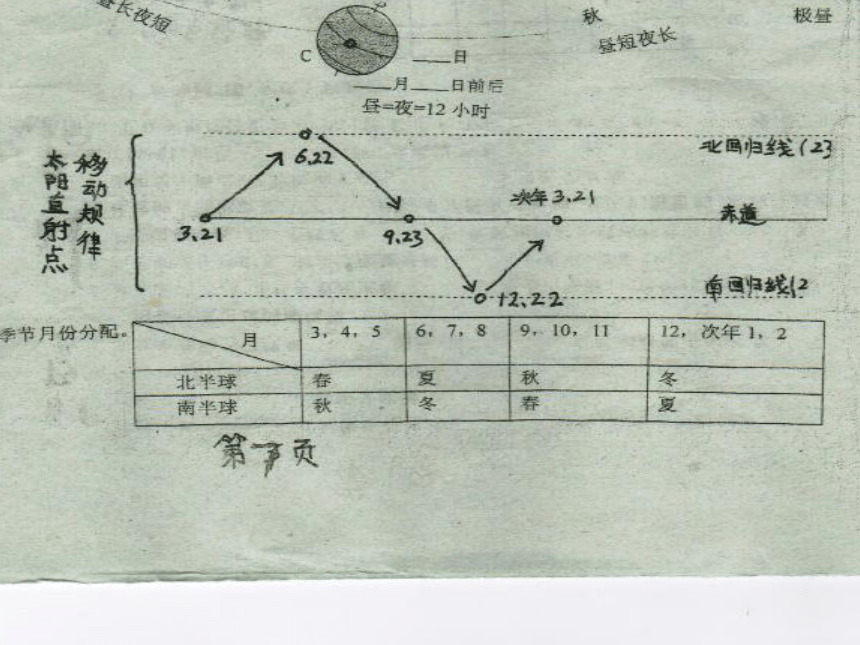 昼长夜短
秋
极昼
昼短夜长
C
日
月 日前后
昼=夜=12 小时
太阳直射点
移动规律
6.22
北回归线(23
3.21
9.23
次年3.21
赤道
12.22
南回归线(2
季节月份分配。
月 3，4，5 6，7，8 9，10，11 12，次年1，2
北半球 春 夏 秋 冬
南半球 秋 冬 春 夏
第 页